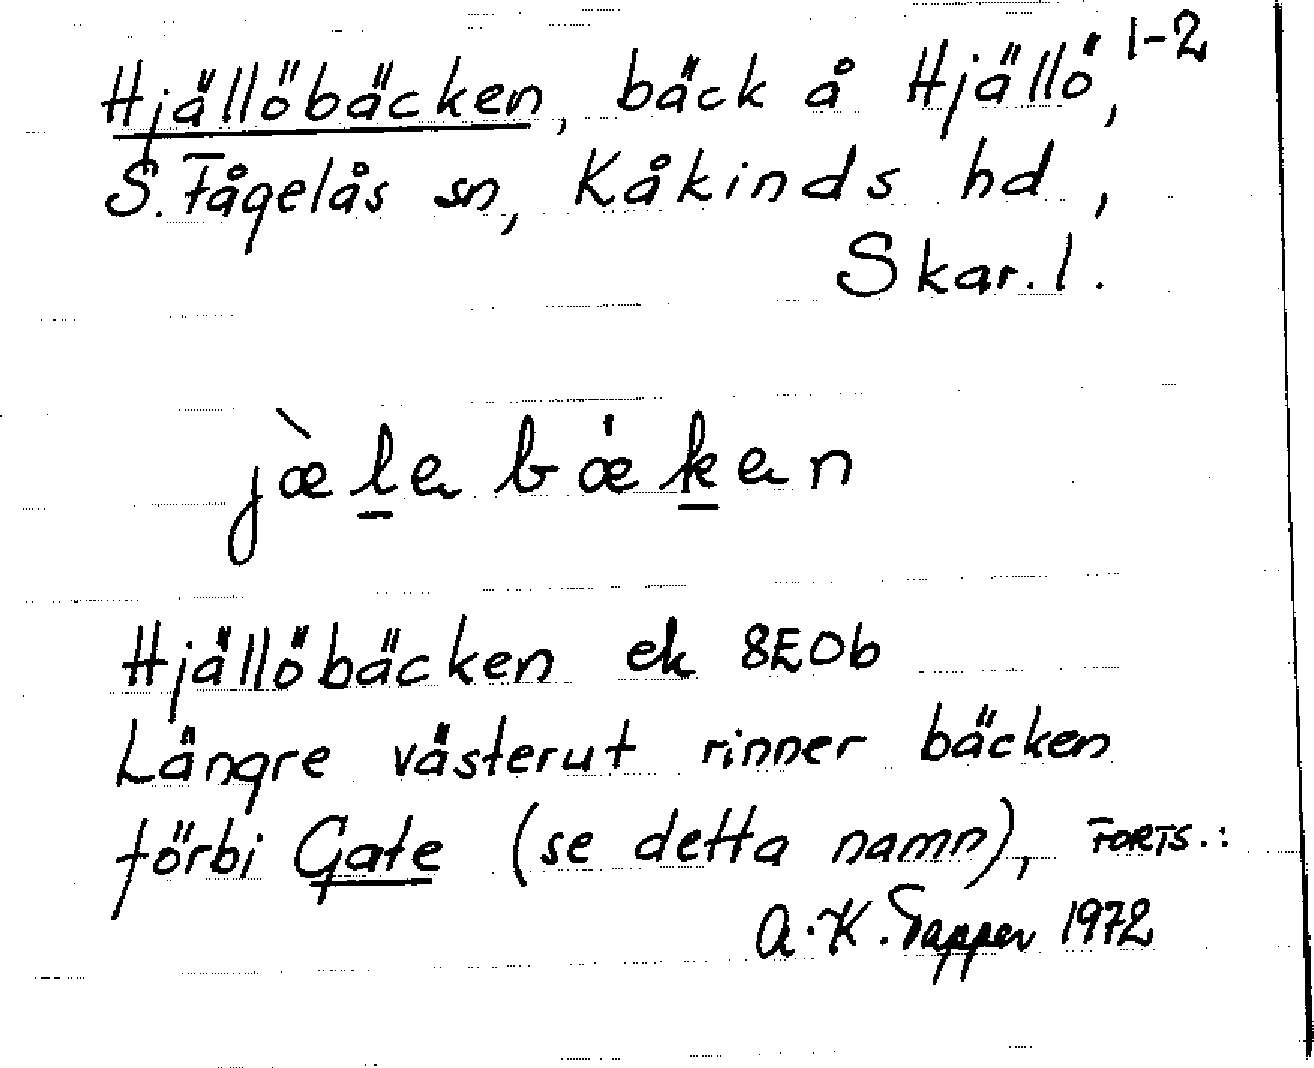 Hjällöbäcken, bäck å Hjällö, 1-2
S. Fågelås sn, Kåkinds hd,
Skar. l.
jæ̀labǽkan
Hjällöbäcken ek 8E0b
Längre västerut rinner bäcken
förbi Gate (se detta namn), FORTS.:
A.K. Tapper 1972